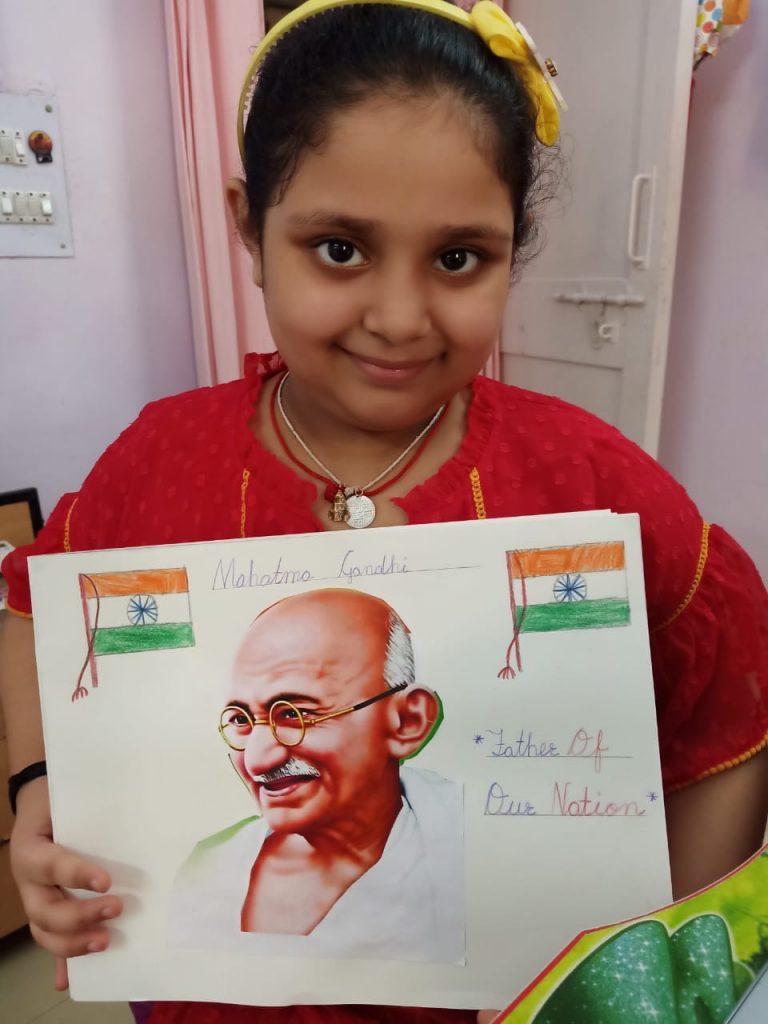 Mahatma Gandhi
*Father Of
Our Nation*